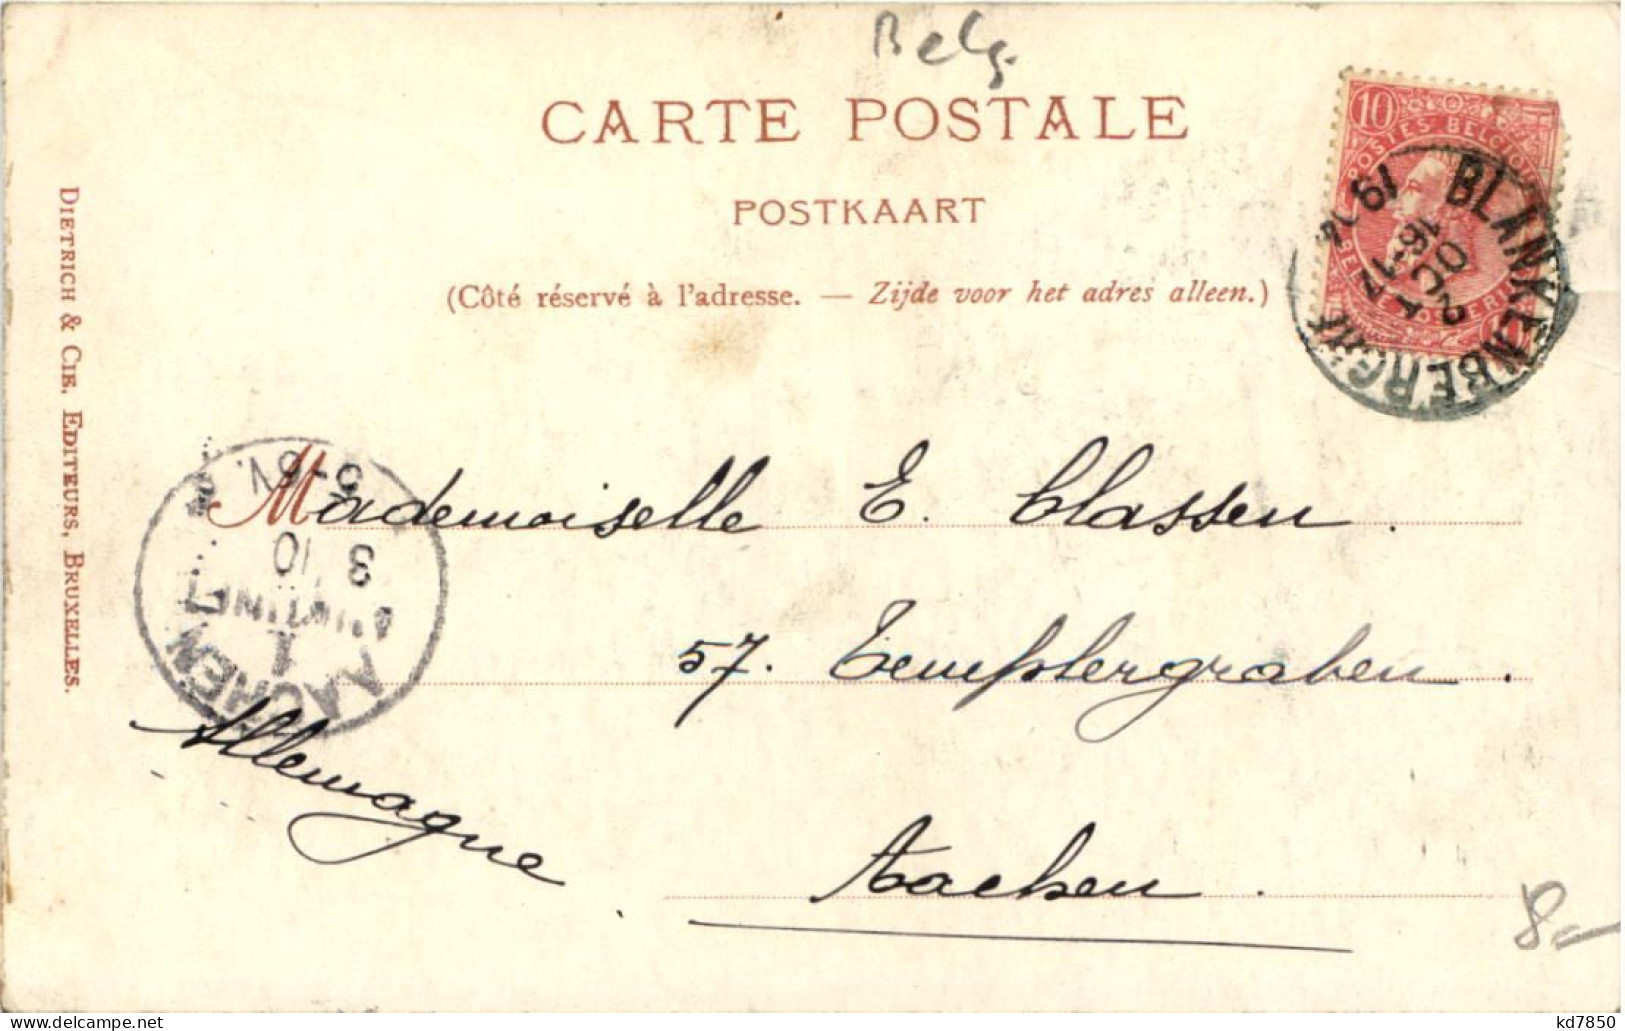 Belg.
CARTE POSTALE
POSTKAART
(Côté réservé à l'adresse. — Zijde voor het adres alleen.)
10
POSTES BELGIQUE
BLANKENBERGHE
2
OCT
16-17
19
DIETRICH & CIE. EDITEURS, BRUXELLES.
5-6V.
3 10
1
AACHEN
Mademoiselle E. Classen.
57. Templergraben.
Aachen.
Allemagne
8.-
kd7850